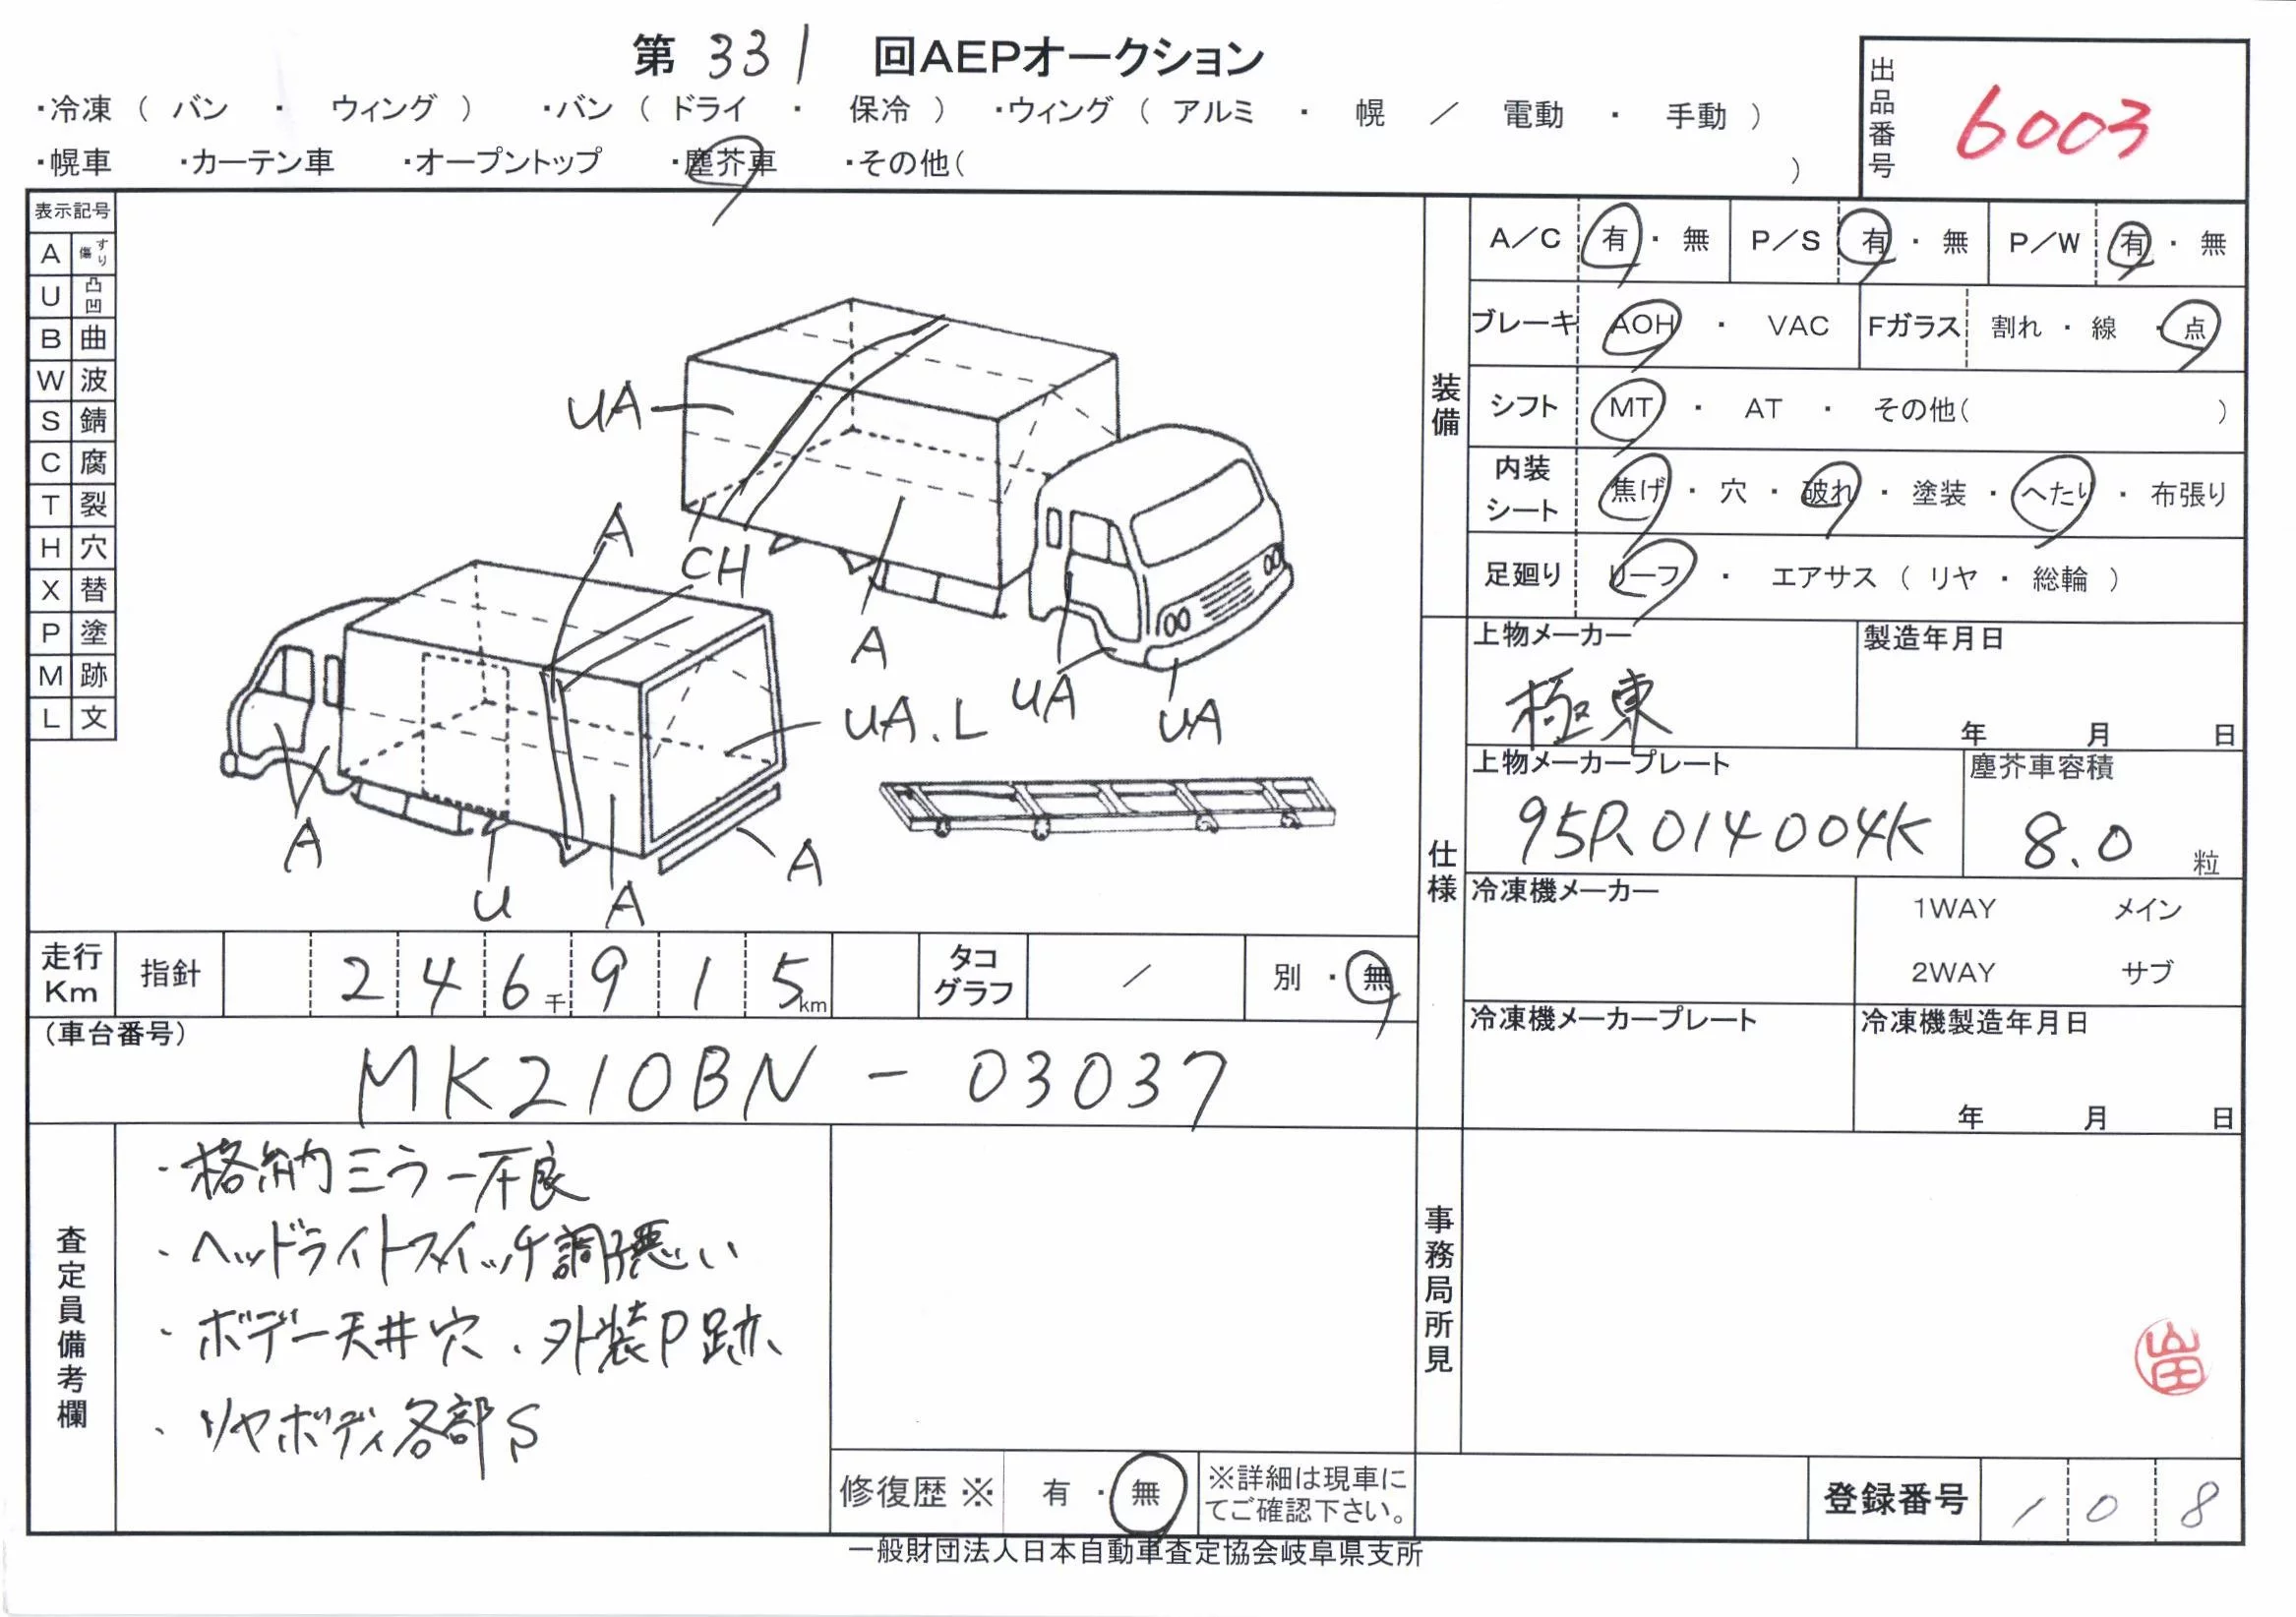 第 331 回AEPオークション
出品番号 6003
・冷凍 ( バン ・ ウィング ) ・バン ( ドライ ・ 保冷 ) ・ウィング ( アルミ ・ 幌 ／ 電動 ・ 手動 )
・幌車 ・カーテン車 ・オープントップ ・塵芥車 ・その他( )
表示記号
A すり傷
U 凸凹
B 曲
W 波
S 錆
C 腐
T 裂
H 穴
X 替
P 塗
M 跡
L 文
UA
A
CH
A
UA
UA
UA.L
A
U
A
A
装備
A／C 有 ・ 無 P／S 有 ・ 無 P／W 有 ・ 無
ブレーキ AOH ・ VAC Fガラス 割れ ・ 線 ・ 点
シフト MT ・ AT ・ その他( )
内装シート 焦げ ・ 穴 ・ 破れ ・ 塗装 ・ へたり ・ 布張り
足廻り リーフ ・ エアサス ( リヤ ・ 総輪 )
仕様
上物メーカー 製造年月日
極東
年 月 日
上物メーカープレート 塵芥車容積
95R014004K 8.0 粒
冷凍機メーカー 1WAY メイン
2WAY サブ
冷凍機メーカープレート 冷凍機製造年月日
年 月 日
走行Km 指針 2 4 6千 9 1 5km タコグラフ ／ 別 ・ 無
(車台番号)
MK210BN - 03037
査定員備考欄
・格納ミラー不良
・ヘッドライトスイッチ調子悪い
・ボデー天井穴、外装P跡
・リヤボディ各部S
修復歴 ※ 有 ・ 無 ※詳細は現車にてご確認下さい。
事務局所見
登録番号 1 0 8
一般財団法人日本自動車査定協会岐阜県支所